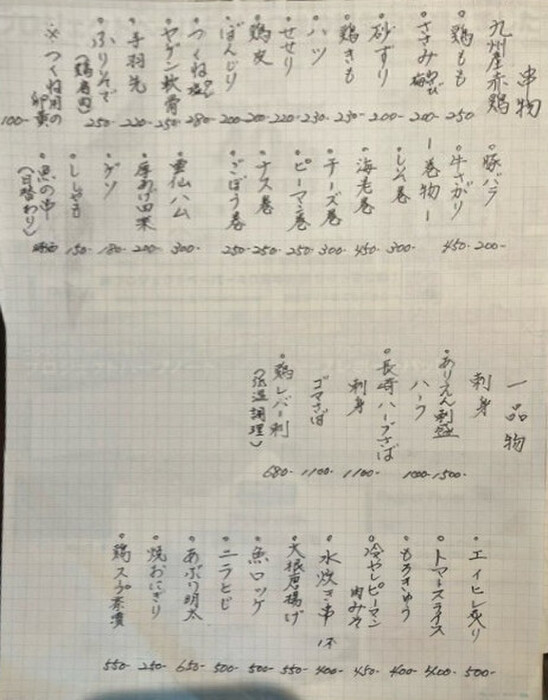 串物
九州産赤鶏
鶏もも 250-
ささみ わさび 梅 200-
砂ずり 200-
鶏きも 230-
ハツ 230-
せせり 220-
鶏皮 200-
ぼんじり 200-
つくね 塩 280-
ヤゲン軟骨 250-
手羽先 220-
ふりそで 250-
(鶏肩肉)
※つくね用の
卵黄 100-
豚バラ 200-
牛さがり 450-
ー巻物ー
しそ巻 300-
海老巻 450-
チーズ巻 300-
ピーマン巻 250-
ナス巻 250-
ごぼう巻 250-
雲仙ハム 300-
厚あげ田楽 200-
ゲソ 180-
ししゃも 150-
魚の串
(日替わり)
一品物
刺身
ありえん刺盛 1500-
ハーフ 1000-
長崎ハーブさば
刺身 1100-
ゴマさば 1100-
鶏レバー刺 680-
(低温調理)
エイヒレ炙り 500-
トマトスライス 400-
もろきゅう 400-
冷やしピーマン
肉みそ 450-
水炊き串 1本 400-
大根唐揚げ 550-
魚ロッケ 500-
ニラとじ 500-
あぶり明太 650-
焼おにぎり 250-
鶏スープ茶漬 550-